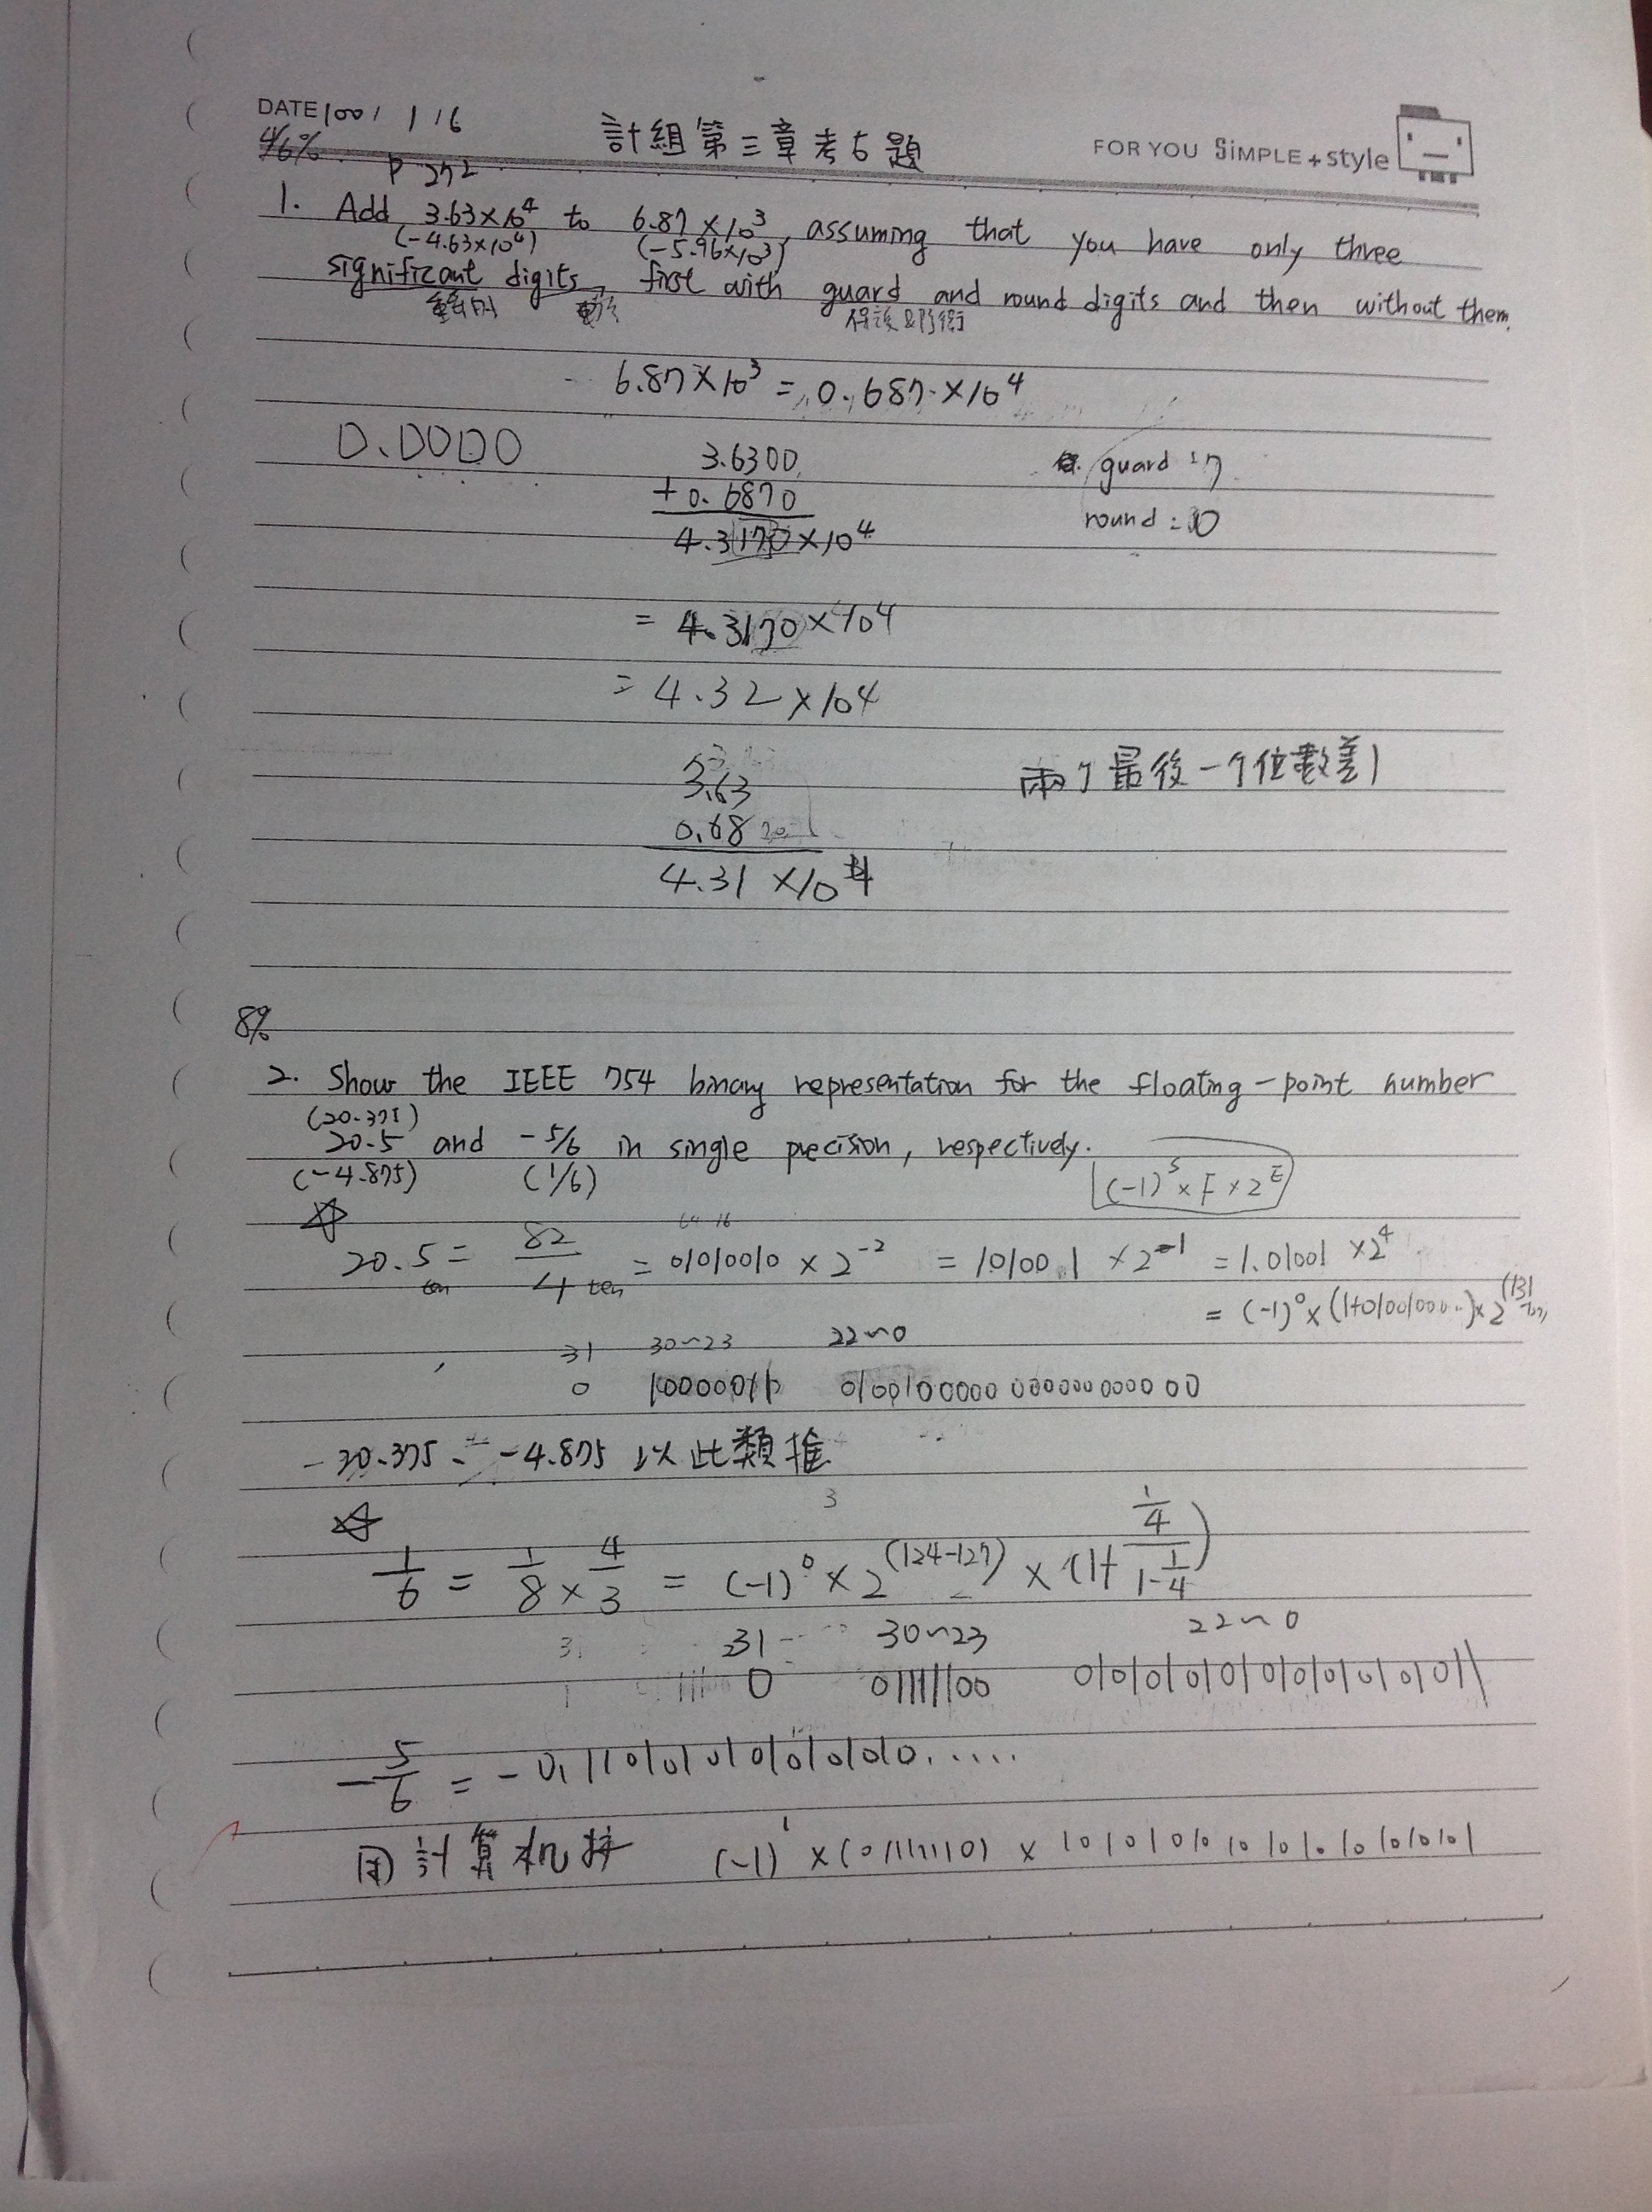 DATE 100 / 1 / 6
計組第三章考古題
FOR YOU SiMPLE + style
4/6%
P 272
1. Add 3.63×10^4 to 6.87×10^3, assuming that you have only three
(-4.63×10^4) (-5.96×10^3)
significant digits, first with guard and round digits and then without them.
保護&防衛
6.87×10^3 = 0.687×10^4
0.0000
3.6300
guard : 7
+0.6870
round : 0
4.3170×10^4
= 4.3170×10^4
= 4.32×10^4
兩个最後一个位數差1
3.63
0.68
4.31×10^4
8%
2. Show the IEEE 754 binary representation for the floating-point number
(20.375)
20.5 and -5/6 in single precision, respectively.
(-4.875) (1/6)
(-1)^S × F × 2^E
20.5 ten = 82/4 ten = 01010010 × 2^-2 = 10100.1 × 2^-1 = 1.01001 × 2^4
= (-1)^0 × (1+01001000..) × 2^(131-127)
31 30~23 22~0
0 10000011 01001000000000000000000
-20.375、-4.875 以此類推
1/6 = 1/8 × 4/3 = (-1)^0 × 2^(124-127) × (1+ (1/4)/(1-1/4))
31 30~23 22~0
0 01111100 01010101010101010101011
-5/6 = -0.110101010101010.....
用計算机按 (-1)^1 × (01111110) × 10101010101010101010101